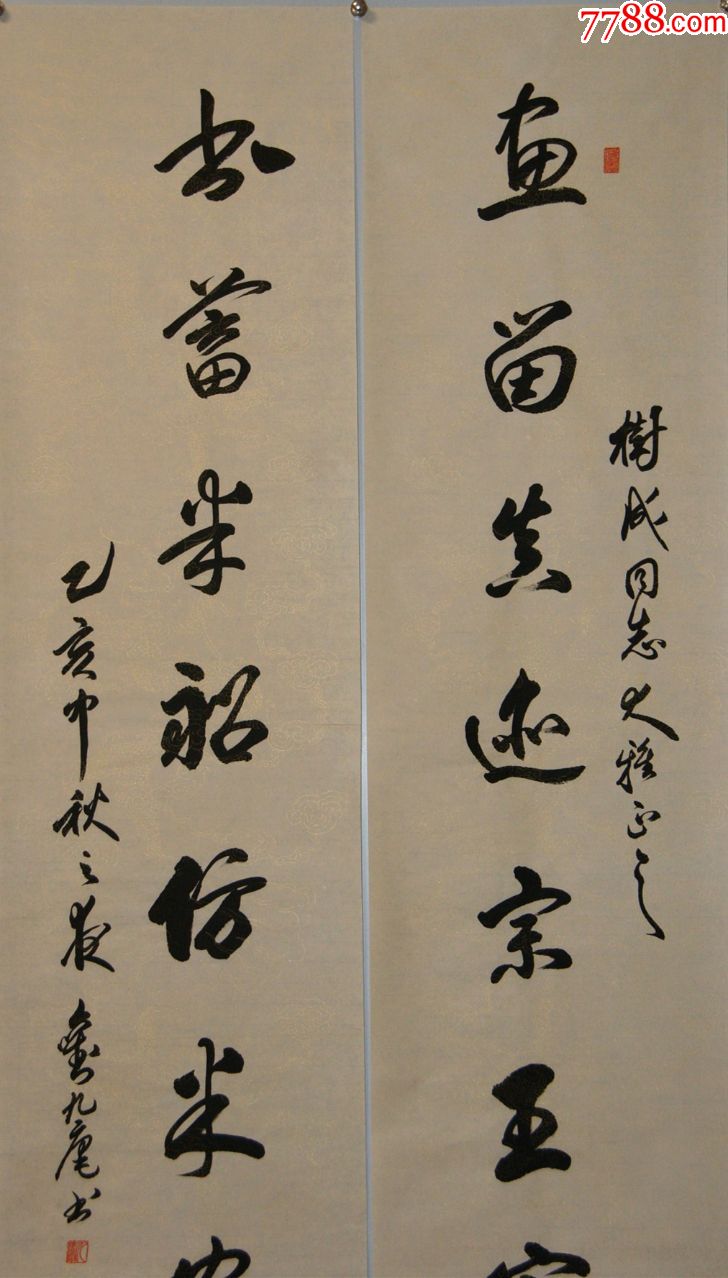 7788.com
画留真迹宗王
树成同志大雅正之
书蓄米船仿米
乙亥中秋之夜 刘九庵书